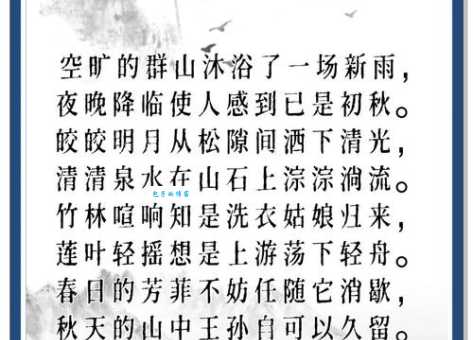 空旷的群山沐浴了一场新雨，
夜晚降临使人感到已是初秋。
皎皎明月从松隙间洒下清光，
清清泉水在山石上淙淙淌流。
竹林喧响知是洗衣姑娘归来，
莲叶轻摇想是上游荡下轻舟。
春日的芳菲不妨任随它消歇，
秋天的山中王孙自可以久留。